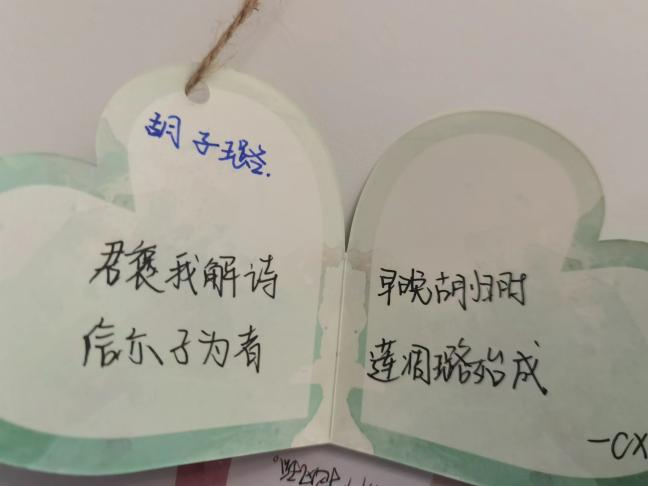 胡子璐.
君褒我解诗
信尔子为者
早晚胡归时
莲凋璐殆成
一CX